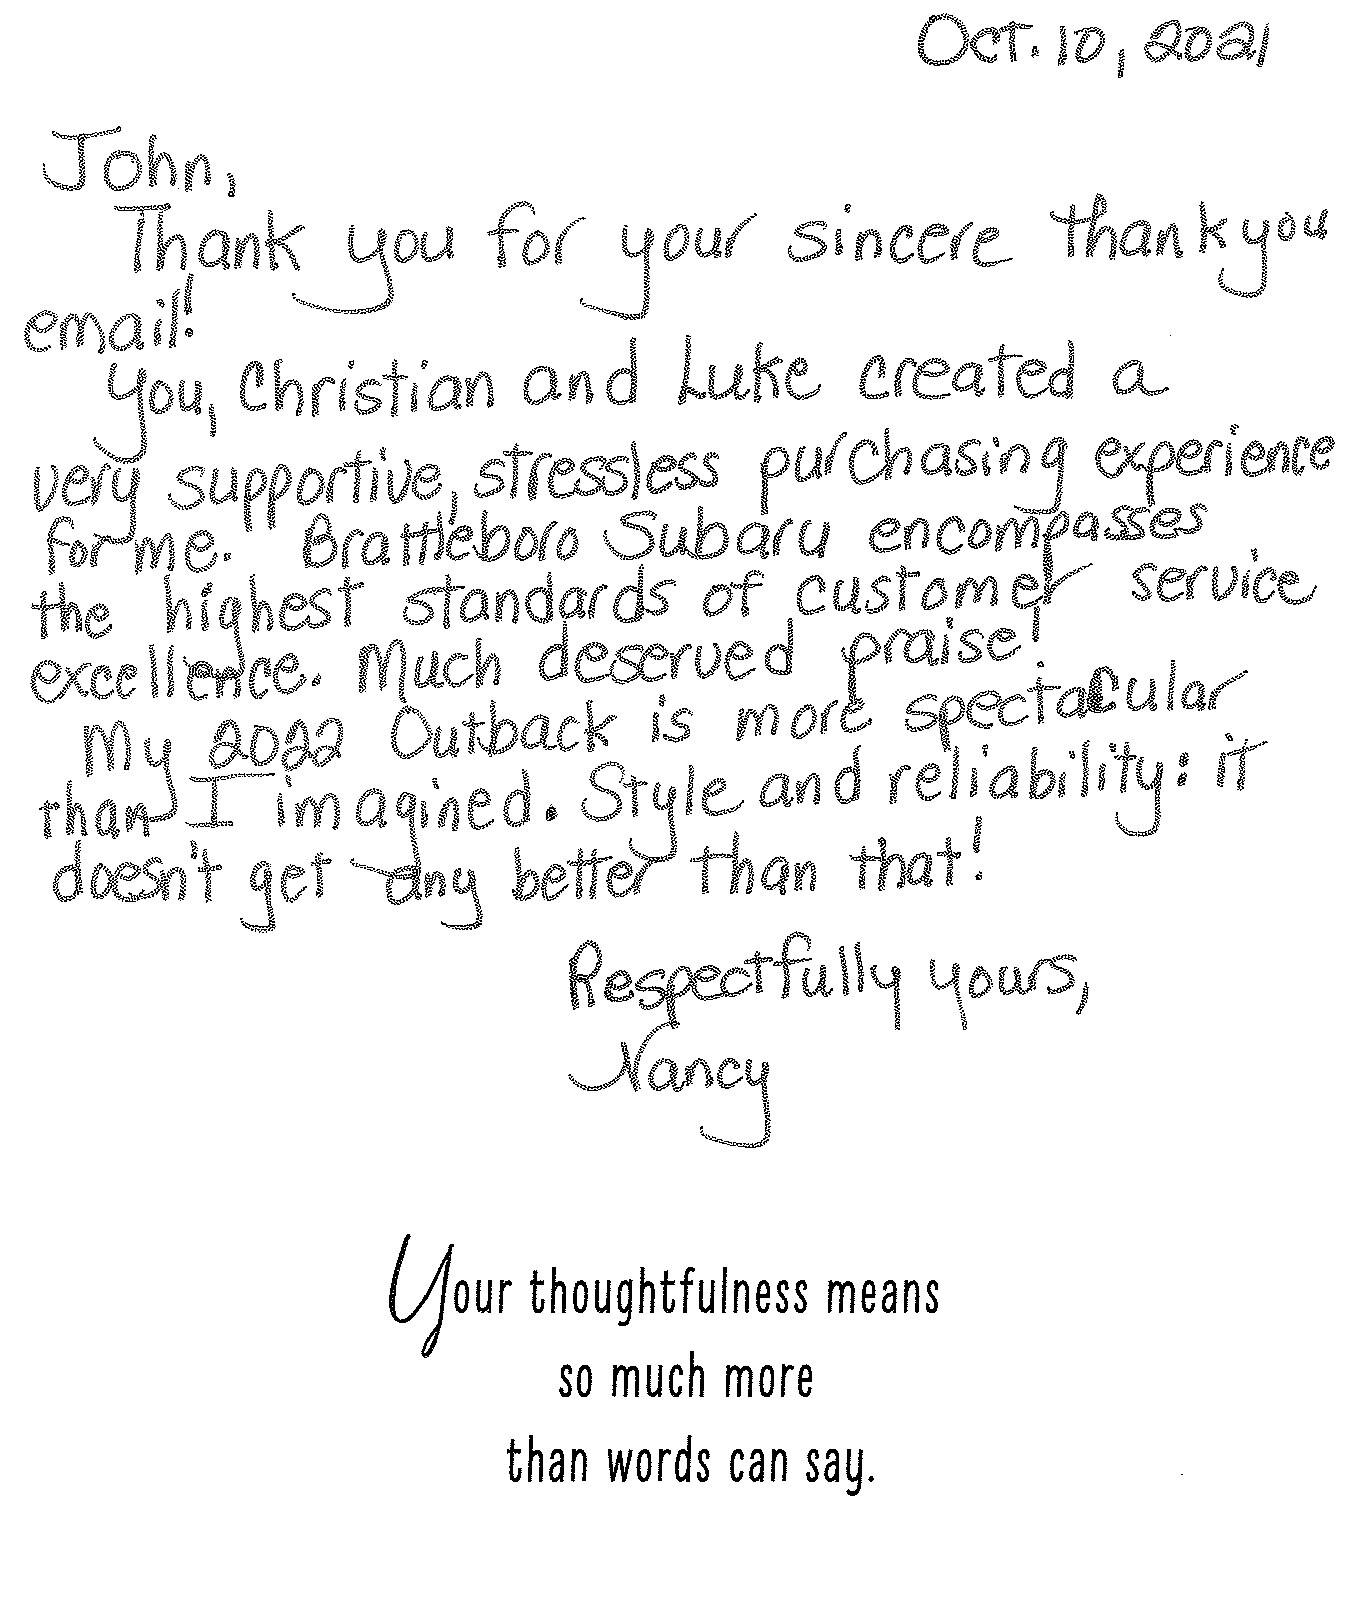 Oct. 10, 2021
John,
Thank you for your sincere thankyou
email!
You, Christian and Luke created a
very supportive, stressless purchasing experience
for me. Brattleboro Subaru encompasses
the highest standards of customer service
excellence. Much deserved praise!
My 2022 Outback is more spectacular
than I imagined. Style and reliability: it
doesn't get any better than that!
Respectfully yours,
Nancy
Your thoughtfulness means
so much more
than words can say.